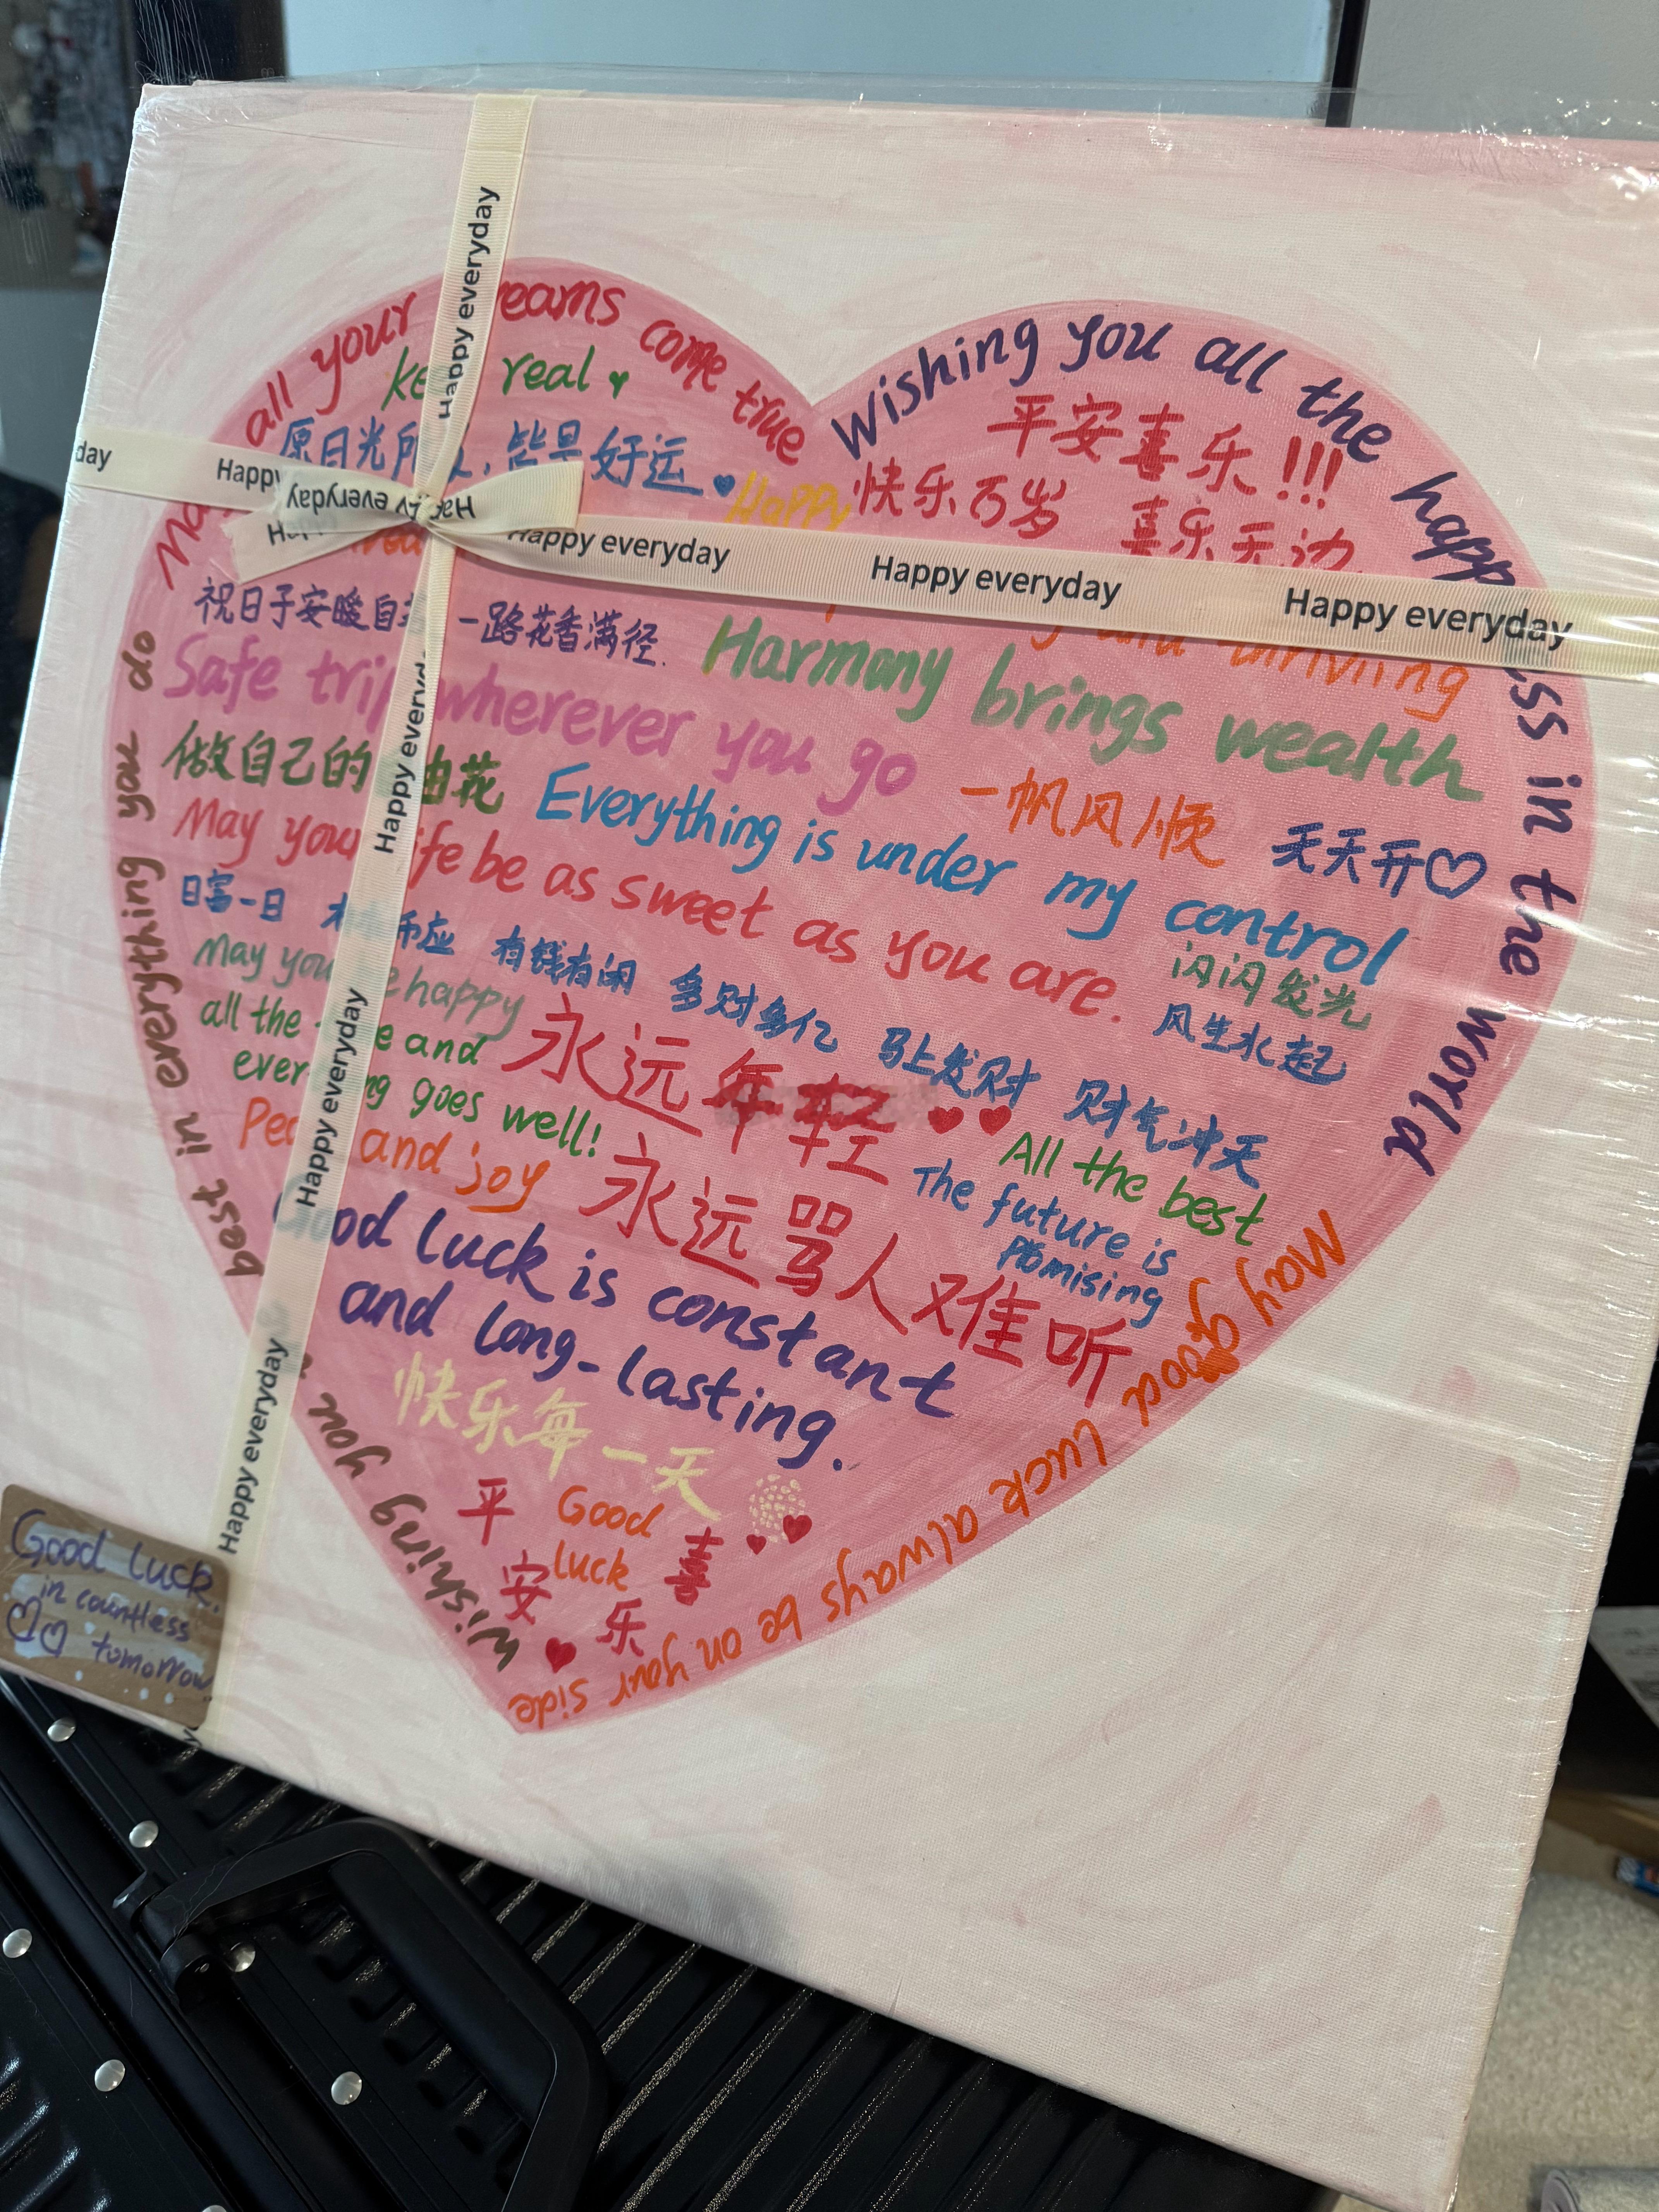 all your
come true
real
日光
好运
Happy
Wishing you all the
in the world
平安喜乐!!!
快乐百岁 喜乐无边
Happy everyday
Happy everyday
Happy everyday
Happy everyday
Happy everyday
Happy everyday
Happy everyday
Happy everyday
祝日子安暖自
一路花香满径.
Safe
wherever you go
Harmony brings wealth
做自己的
花
一帆风顺
天天开♡
Everything is under my control
May your life be as sweet as you are.
闪闪发光
日富一日
有钱有闲 多财多亿 马上发财 财气冲天
风生水起
May you
happy
all the
and
goes well!
永远年轻
and joy
永远骂人难听
All the best
The future is
promising
luck is constant
and long-lasting.
快乐每一天
平安喜乐
Good
luck
wishing you
best in everything you do
May good luck always be on your side
Good luck.
in countless
tomorrow